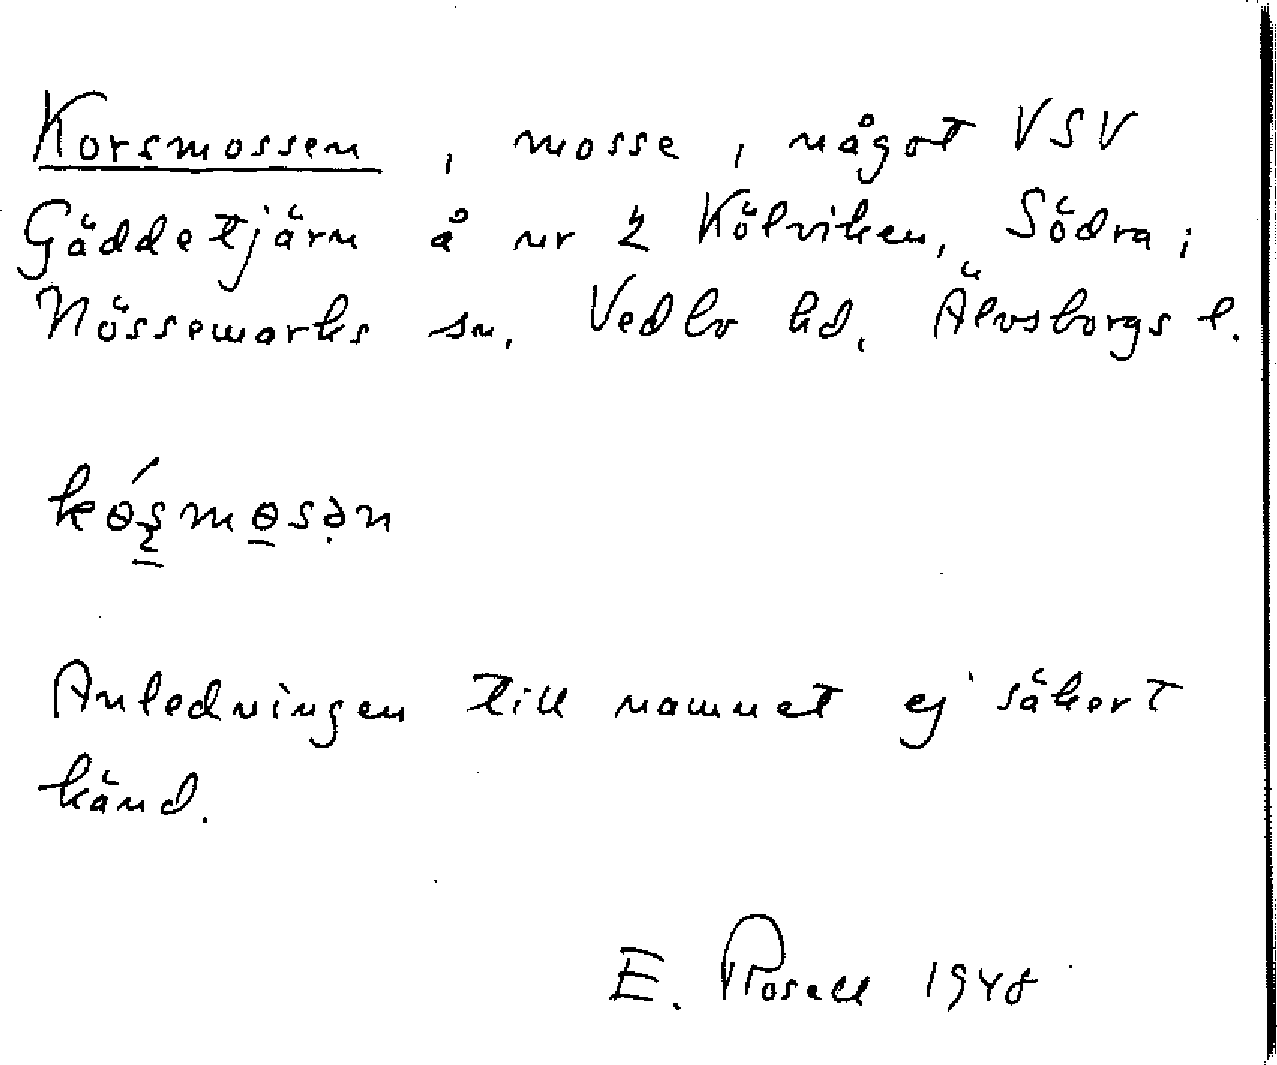 Korsmossen, mosse, något VSV
Gäddetjärn å nr 2 Kölviken, Södra i
Nössemarks sn, Vedbo hd, Älvsborgs l.
Anledningen till namnet ej säkert
känd.
E. Rosell 1948